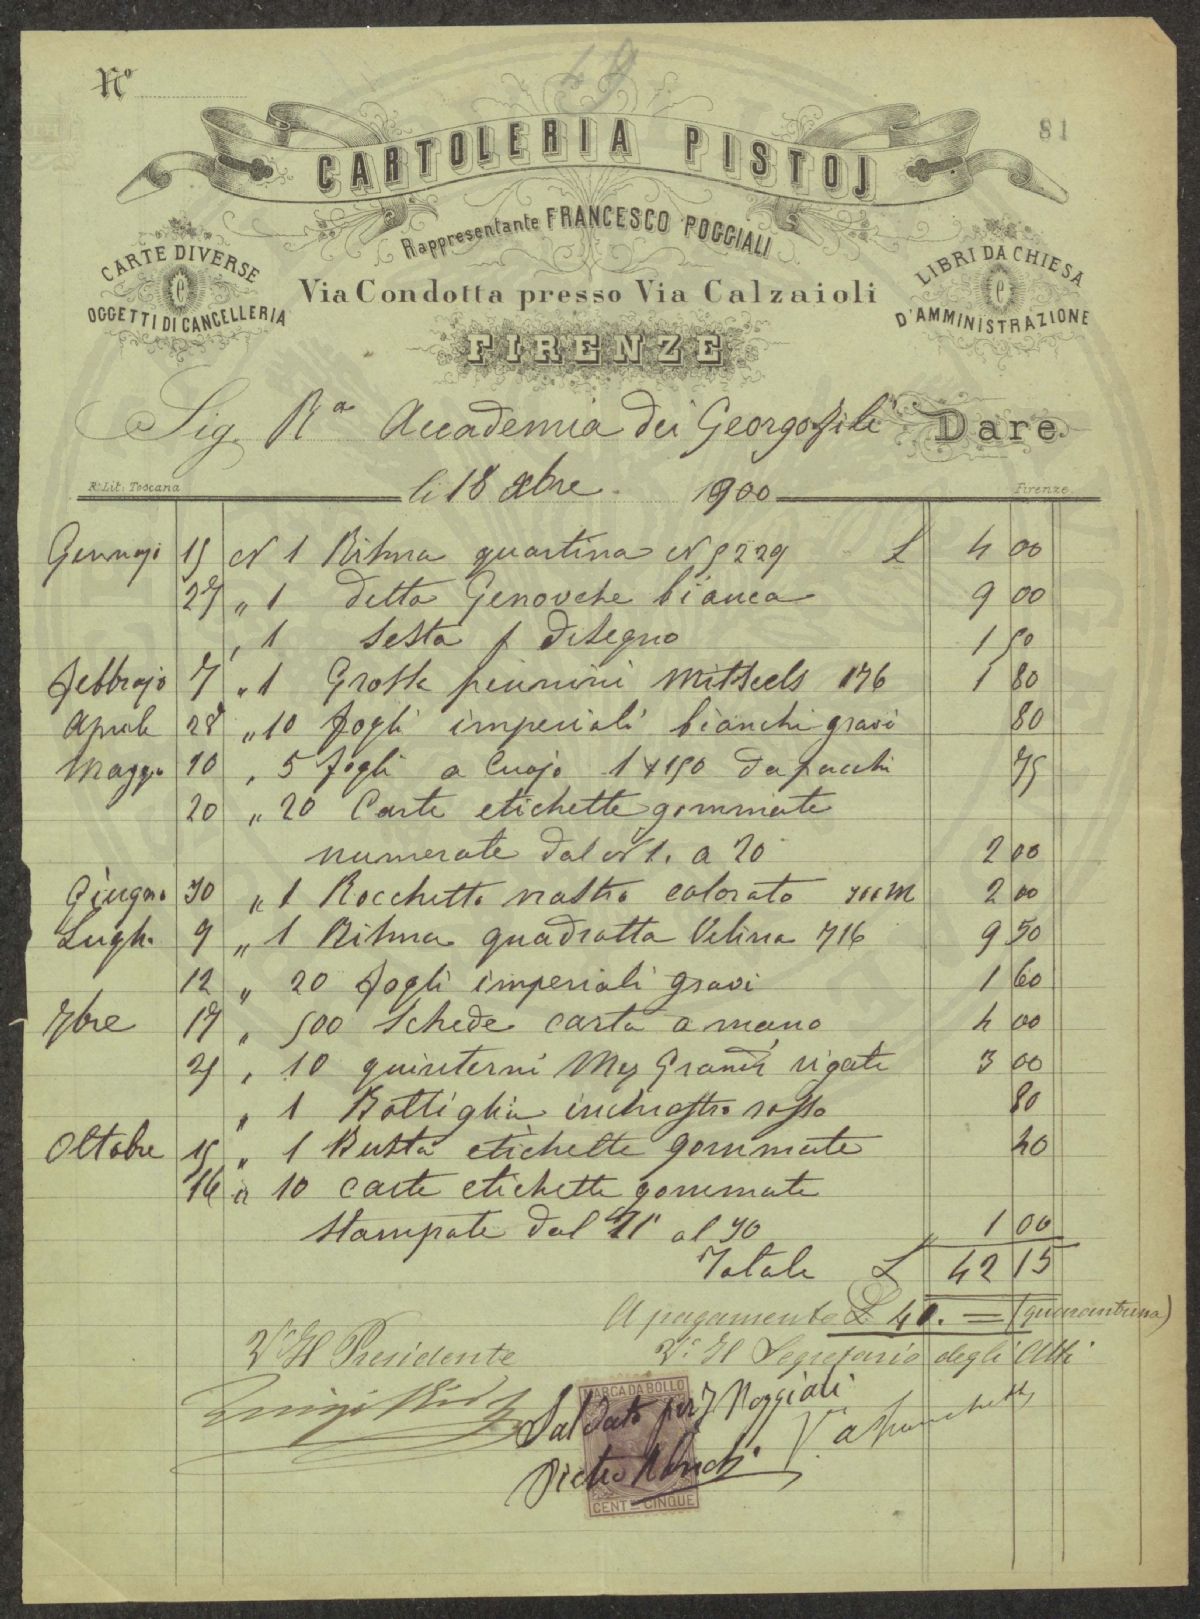 No
49
81
CARTOLERIA PISTOJ
Rappresentante FRANCESCO POGGIALI
CARTE DIVERSE
e
OGGETTI DI CANCELLERIA
LIBRI DA CHIESA
e
D'AMMINISTRAZIONE
Via Condotta presso Via Calzaioli
FIRENZE
Sig. Ra Accademia dei Georgofili Dare
Ra Lit. Toscana
Firenze
li 18 Xbre 1900
Gennajo 15 N 1 Risma quartina N 5229 £ 4 00
27 " 1 detta Genovche bianca 9 00
" 1 Sesta p disegno 1 50
Febbrajo 7 " 1 Grossa pennini Mitscels 176 1 80
Aprile 28 " 10 fogli imperiali bianchi gravi 80
Maggio 10 " 5 fogli a Cuojo 1 x 150 da pacchi 75
20 " 20 Carte etichette gommate
numerate dal N 1. a 20 2 00
Giugno 30 " 1 Rocchetto nastro colorato 2 00
Lugl. 9 " 1 Risma quadrotta Velina 716 9 50
12 " 20 fogli imperiali gravi 1 60
7bre 17 " 500 Schede carta a mano 4 00
25 " 10 quinterni Mez Grandi rigati 3 00
" 1 Bottiglia inchiostro rosso 80
Ottobre 15 " 1 Busta etichette gommate 40
16 " 10 carte etichette gommate
stampate dal 21 al 30 1 00
Totale £ 42 15
A pagamento £ 41. = (quarantuna)
Vo Il Presidente
Vo Il Segretario degli Atti
MARCA DA BOLLO
Saldato per F Poggiali
Pietro
CENT. CINQUE